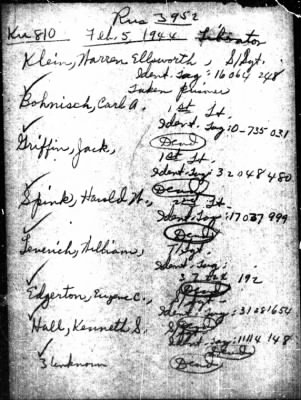 Rus 3952
Ku 810 Feb. 5, 1944 Liberator
Klein, Harren Ellsworth, S/Sgt.
Ident. Tag: 16 064 248
Taken prisoner
Bohnisch, Carl A. 1st Lt.
Ident. Tag: O-735 031
Dead
Griffin, Jack, 1st Lt.
Ident. Tag: 32048480
Dead
Spink, Harold W., 2nd Lt.
Ident. Tag: 17037999
Dead
Leverich, William, T/Sgt.
Ident. Tag:
37 192
Dead
Edgerton, Eugene C.,
Ident. Tag: 31081654
Hall, Kenneth S. Dead
Ident. Tag: 1114 148
Dead
3 Unknown Dead